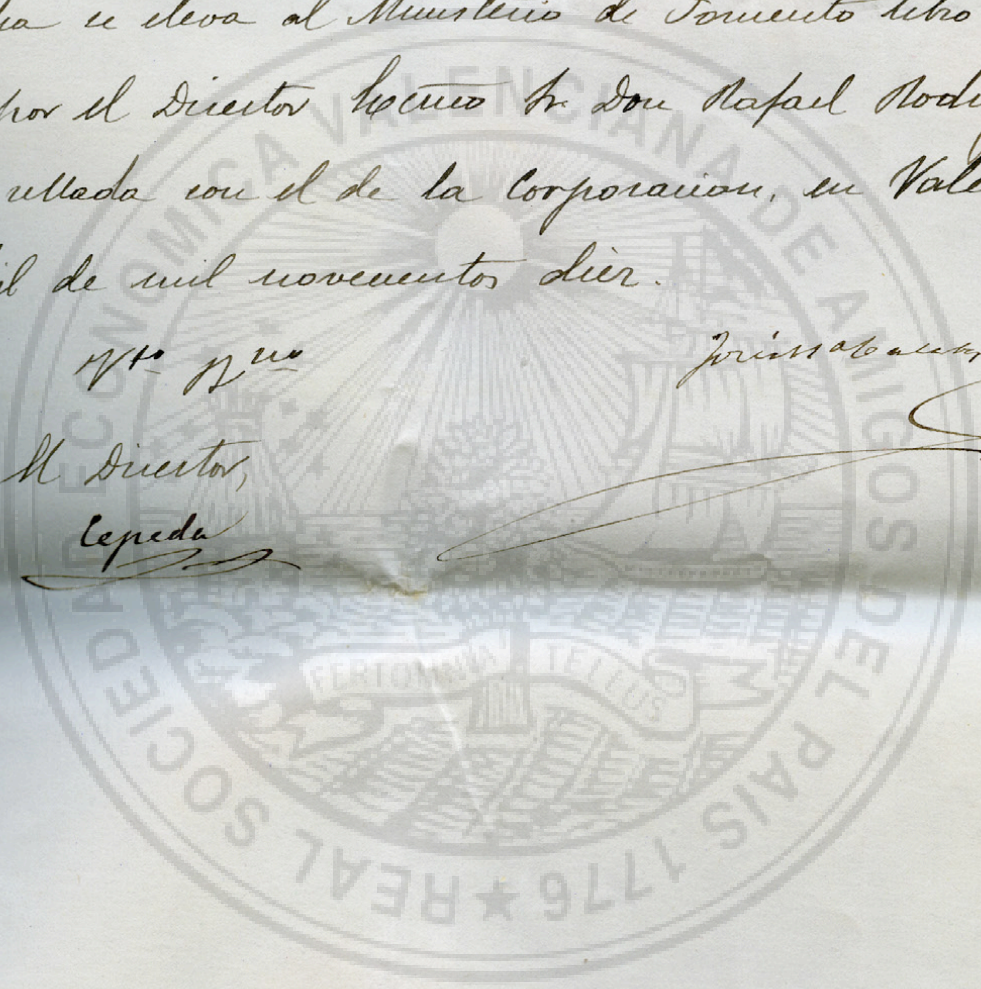 se eleva al Ministerio de Fomento libro
por el Director Excmo Sr. Don Rafael
sellada con el de la Corporacion, en
de mil novecientos diez.
Vto Bno
El Director,
Cepeda
REAL SOCIEDAD ECONOMICA VALENCIANA DE AMIGOS DEL PAIS 1776
FERT OMNIA TELLUS